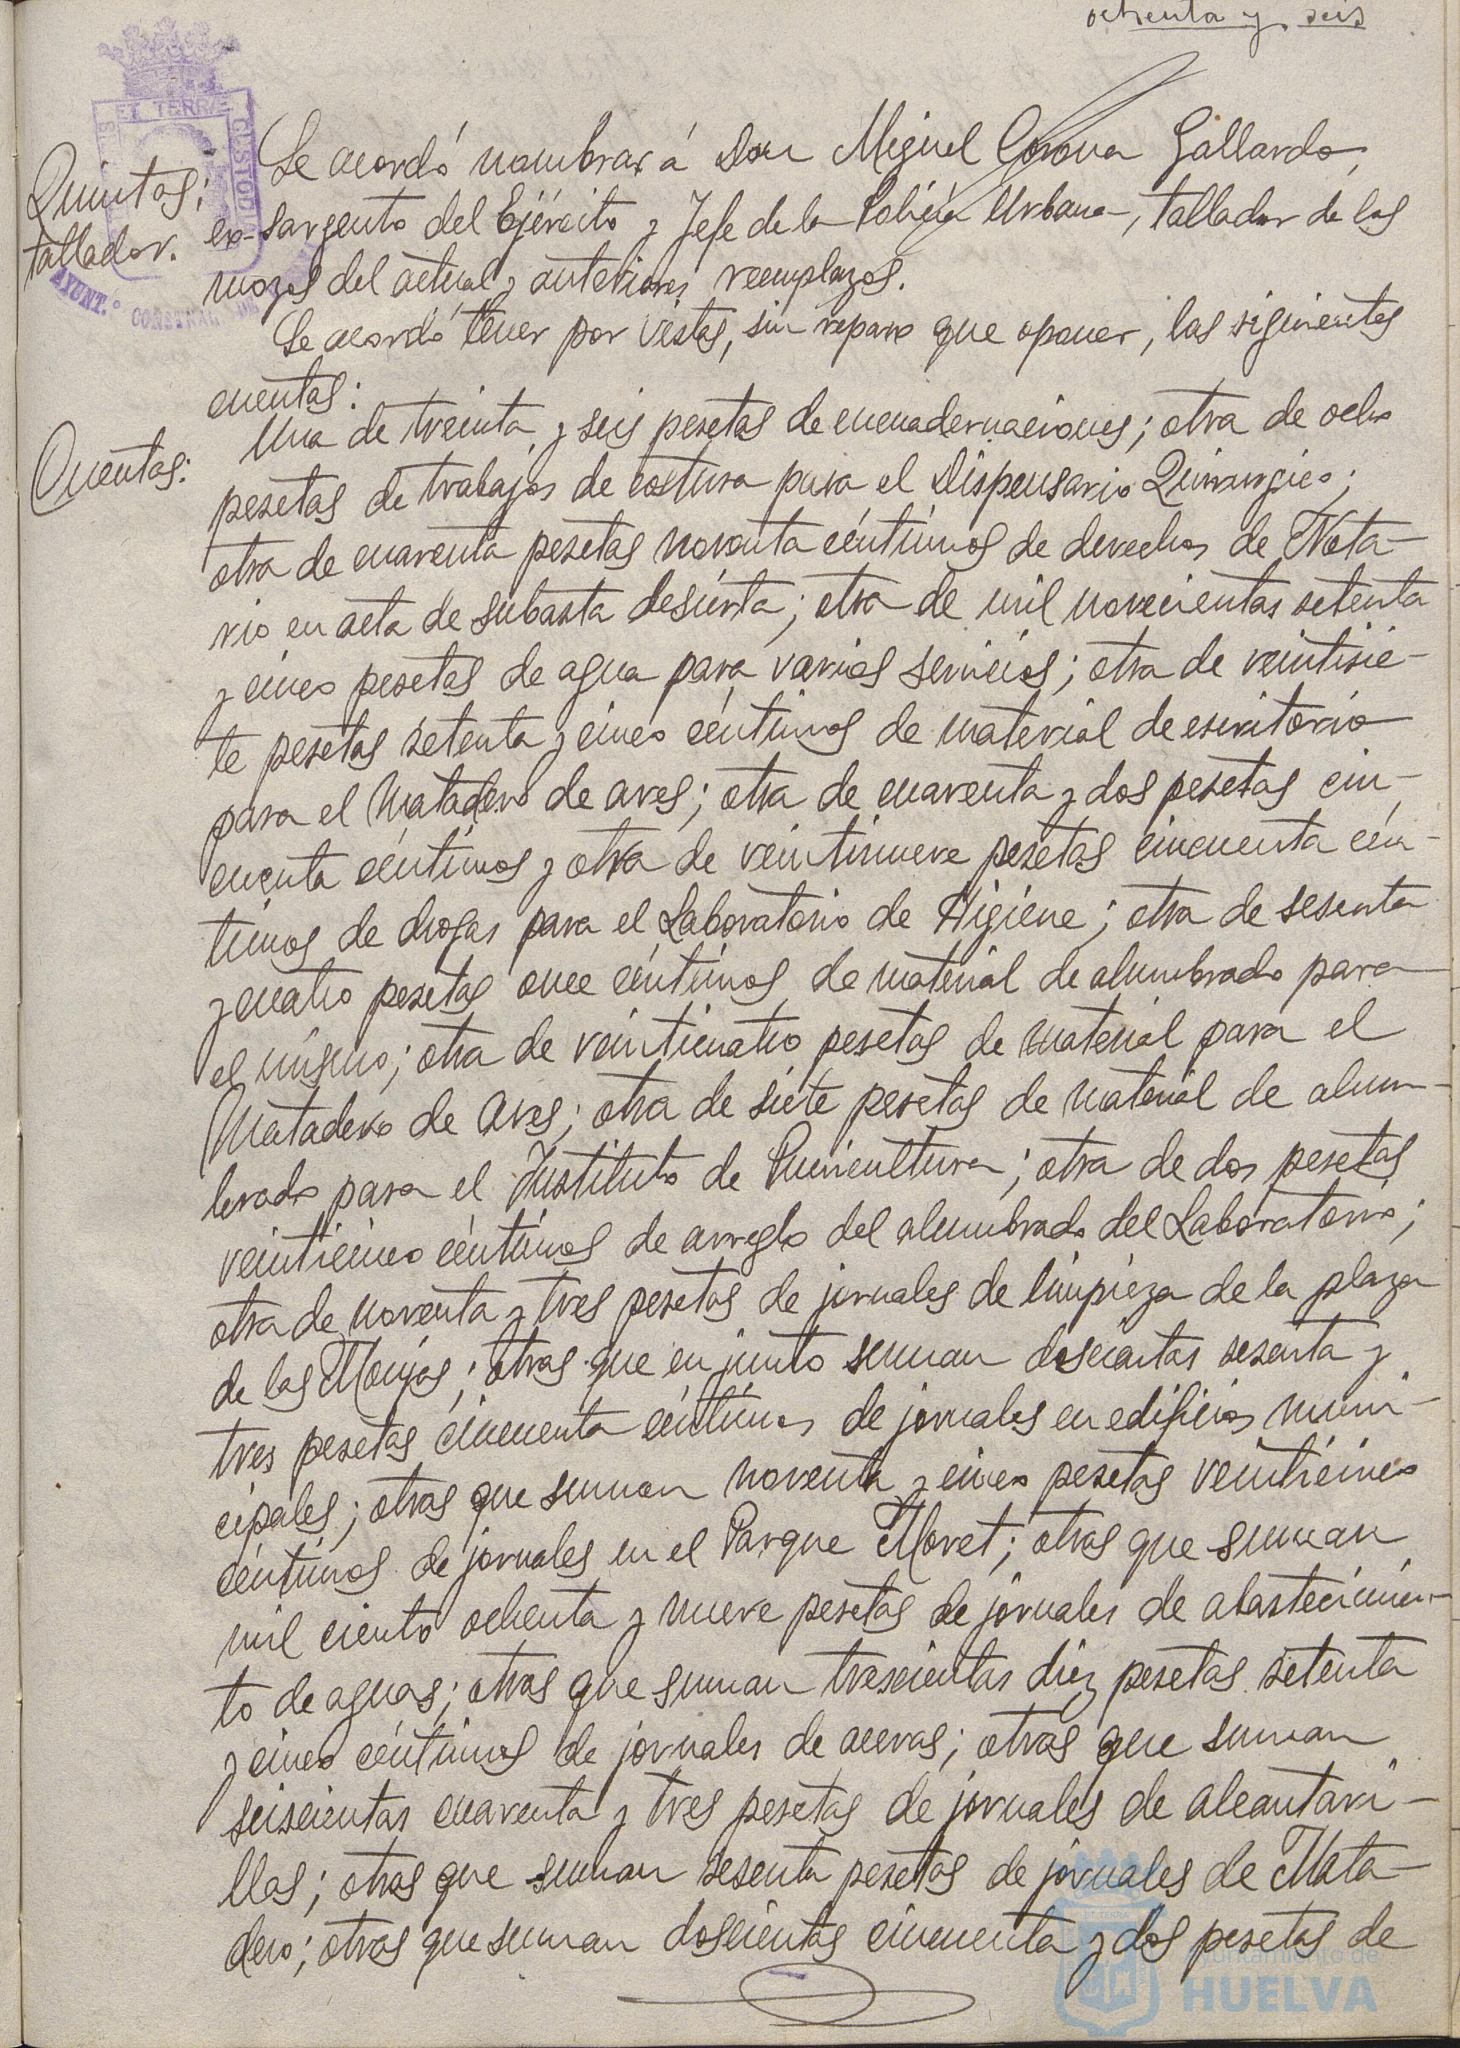 ochenta y seis
Quintas;
tallador.
Se acordó nombrar á Don Miguel Corona Gallardo,
ex-sargento del Ejército y Jefe de la Policía Urbana, tallador de los
mozos del actual y anteriores reemplazos.
Se acordó tener por vistas, sin reparo que oponer, las siguientes
cuentas:
Cuentas:
Una de treinta y seis pesetas de encuadernaciones; otra de ocho
pesetas de trabajos de costura para el Dispensario Quirurgico;
otra de cuarenta pesetas noventa céntimos de derechos de Nota-
rio en acta de subasta desierta; otra de mil novecientas setenta
y cinco pesetas de agua para varios servicios; otra de veintisie-
te pesetas setenta y cinco céntimos de material de escritorio
para el Matadero de aves; otra de cuarenta y dos pesetas cin-
cuenta céntimos y otra de veintinueve pesetas cincuenta cén-
timos de drogas para el Laboratorio de Higiene; otra de sesenta
y cuatro pesetas once céntimos de material de alumbrado para
el mismo; otra de veinticuatro pesetas de material para el
Matadero de Aves; otra de siete pesetas de material de alum-
brado para el Instituto de Puericultura; otra de dos pesetas
veinticinco céntimos de arreglo del alumbrado del Laboratorio;
otra de noventa y tres pesetas de jornales de limpieza de la plaza
de las Monjas; otras que en junto suman doscientas sesenta y
tres pesetas cincuenta céntimos de jornales en edificios muni-
cipales; otras que suman noventa y cinco pesetas veinticinco
céntimos de jornales en el Parque Moret; otras que suman
mil ciento ochenta y nueve pesetas de jornales de abastecimien-
to de aguas; otras que suman trescientas diez pesetas setenta
y cinco céntimos de jornales de aceras; otras que suman
seiscientas cuarenta y tres pesetas de jornales de alcantari-
llas; otras que suman sesenta pesetas de jornales de Mata-
dero; otras que suman doscientas cincuenta y dos pesetas de
ET TERRÆ CUSTODIA
AYUNT.º CONSTNAL DE
Ayuntamiento de
HUELVA